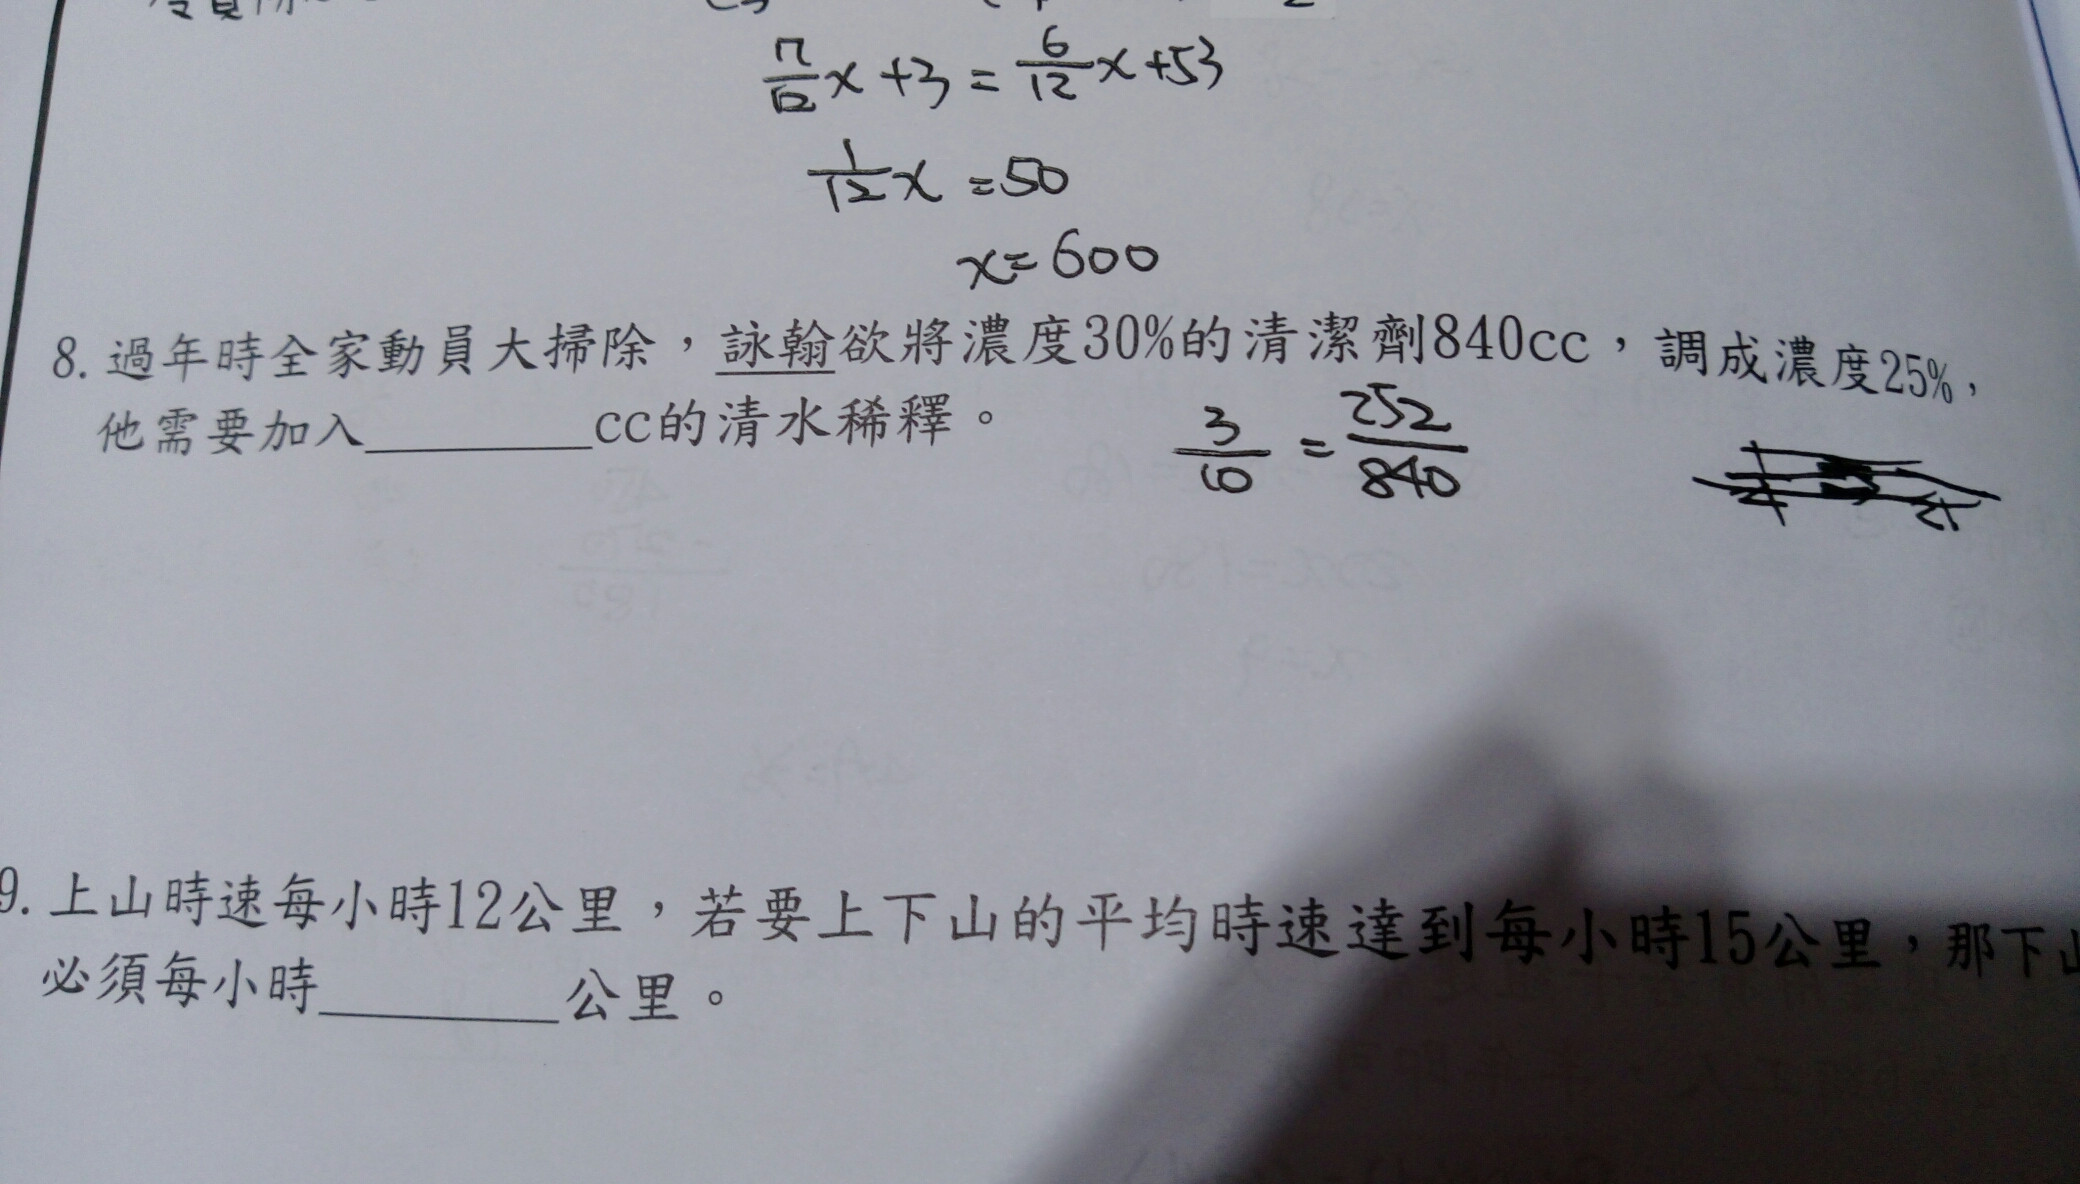 7/12 x + 3 = 6/12 x + 53
1/12 x = 50
x = 600
8. 過年時全家動員大掃除，詠翰欲將濃度30%的清潔劑840cc，調成濃度25%，
他需要加入________cc的清水稀釋。
3/10 = 252/840
9. 上山時速每小時12公里，若要上下山的平均時速達到每小時15公里，那下山
必須每小時________公里。